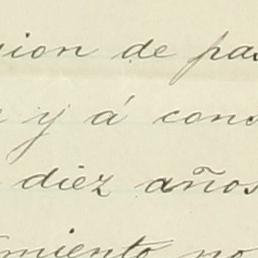 sion de pas
y á cons
diez años
miento no